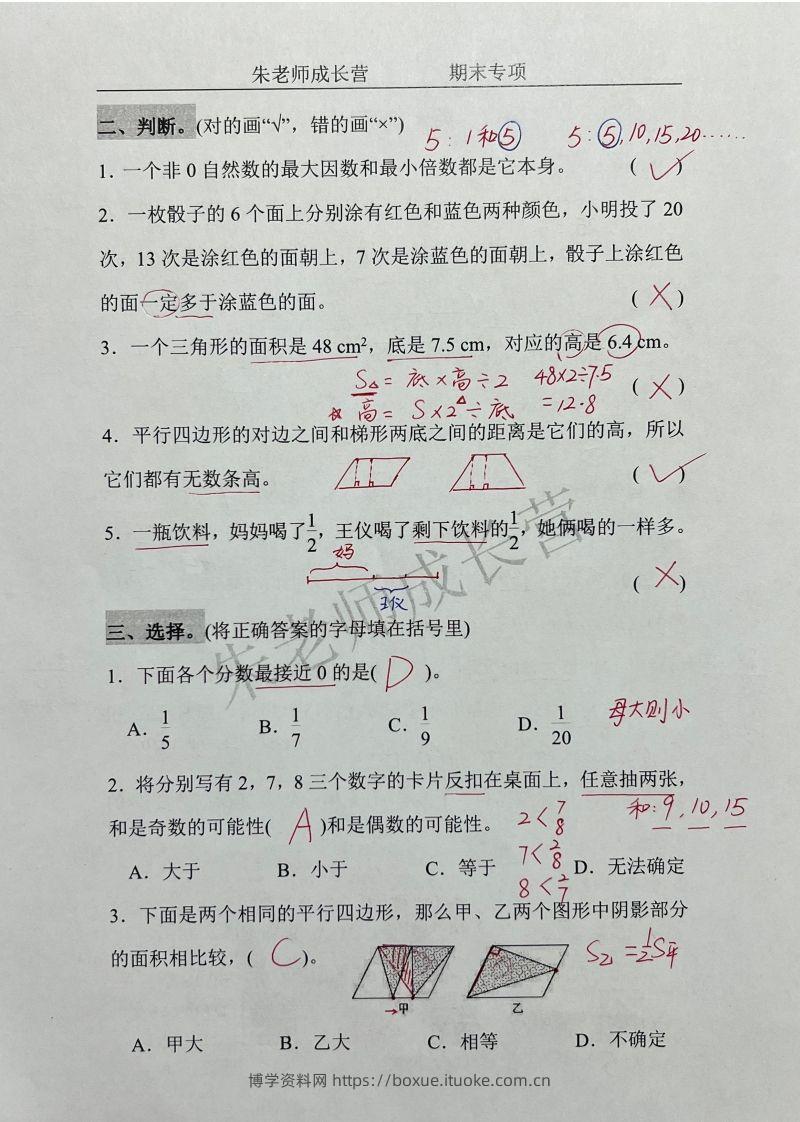 朱老师成长营 期末专项
二、判断。(对的画“√”，错的画“×”)
5：1和5 5：5,10,15,20……
1．一个非0自然数的最大因数和最小倍数都是它本身。 (√)
2．一枚骰子的6个面上分别涂有红色和蓝色两种颜色，小明投了20
次，13次是涂红色的面朝上，7次是涂蓝色的面朝上，骰子上涂红色
的面一定多于涂蓝色的面。 (×)
3．一个三角形的面积是48 cm²，底是7.5 cm，对应的高是6.4 cm。
S△=底×高÷2 48×2÷7.5 (×)
☆高△=S×2÷底 =12.8
4．平行四边形的对边之间和梯形两底之间的距离是它们的高，所以
它们都有无数条高。 (√)
5．一瓶饮料，妈妈喝了1/2，王仪喝了剩下饮料的1/2，她俩喝的一样多。
妈
王仪
(×)
朱老师成长营
三、选择。(将正确答案的字母填在括号里)
1．下面各个分数最接近0的是( D )。
A．1/5 B．1/7 C．1/9 D．1/20 母大则小
2．将分别写有2，7，8三个数字的卡片反扣在桌面上，任意抽两张，
和:9,10,15
和是奇数的可能性( A )和是偶数的可能性。 2<7 8
7<2 8
8<2 7
A．大于 B．小于 C．等于 D．无法确定
3．下面是两个相同的平行四边形，那么甲、乙两个图形中阴影部分
的面积相比较，( C )。 S乙=1/2S平
→甲 乙
A．甲大 B．乙大 C．相等 D．不确定
博学资料网 https://boxue.ituoke.com.cn